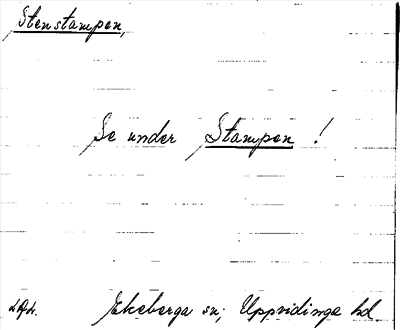 Stenstampen,
Se under Stampen !
Ekeberga sn; Uppvidinge hd.